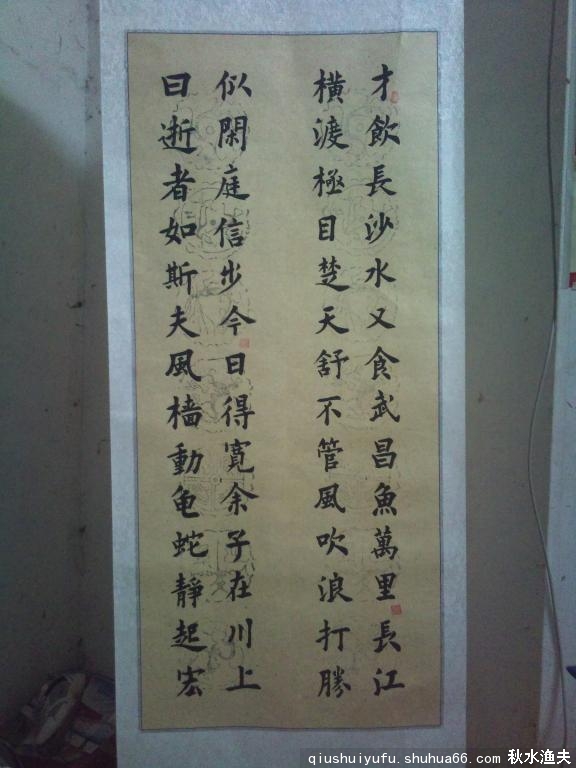 才飲長沙水又食武昌魚萬里長江
橫渡極目楚天舒不管風吹浪打勝
似閑庭信步今日得寬余子在川上
曰逝者如斯夫風檣動龟蛇靜起宏
qiushuiyufu.shuhua66.com 秋水渔夫